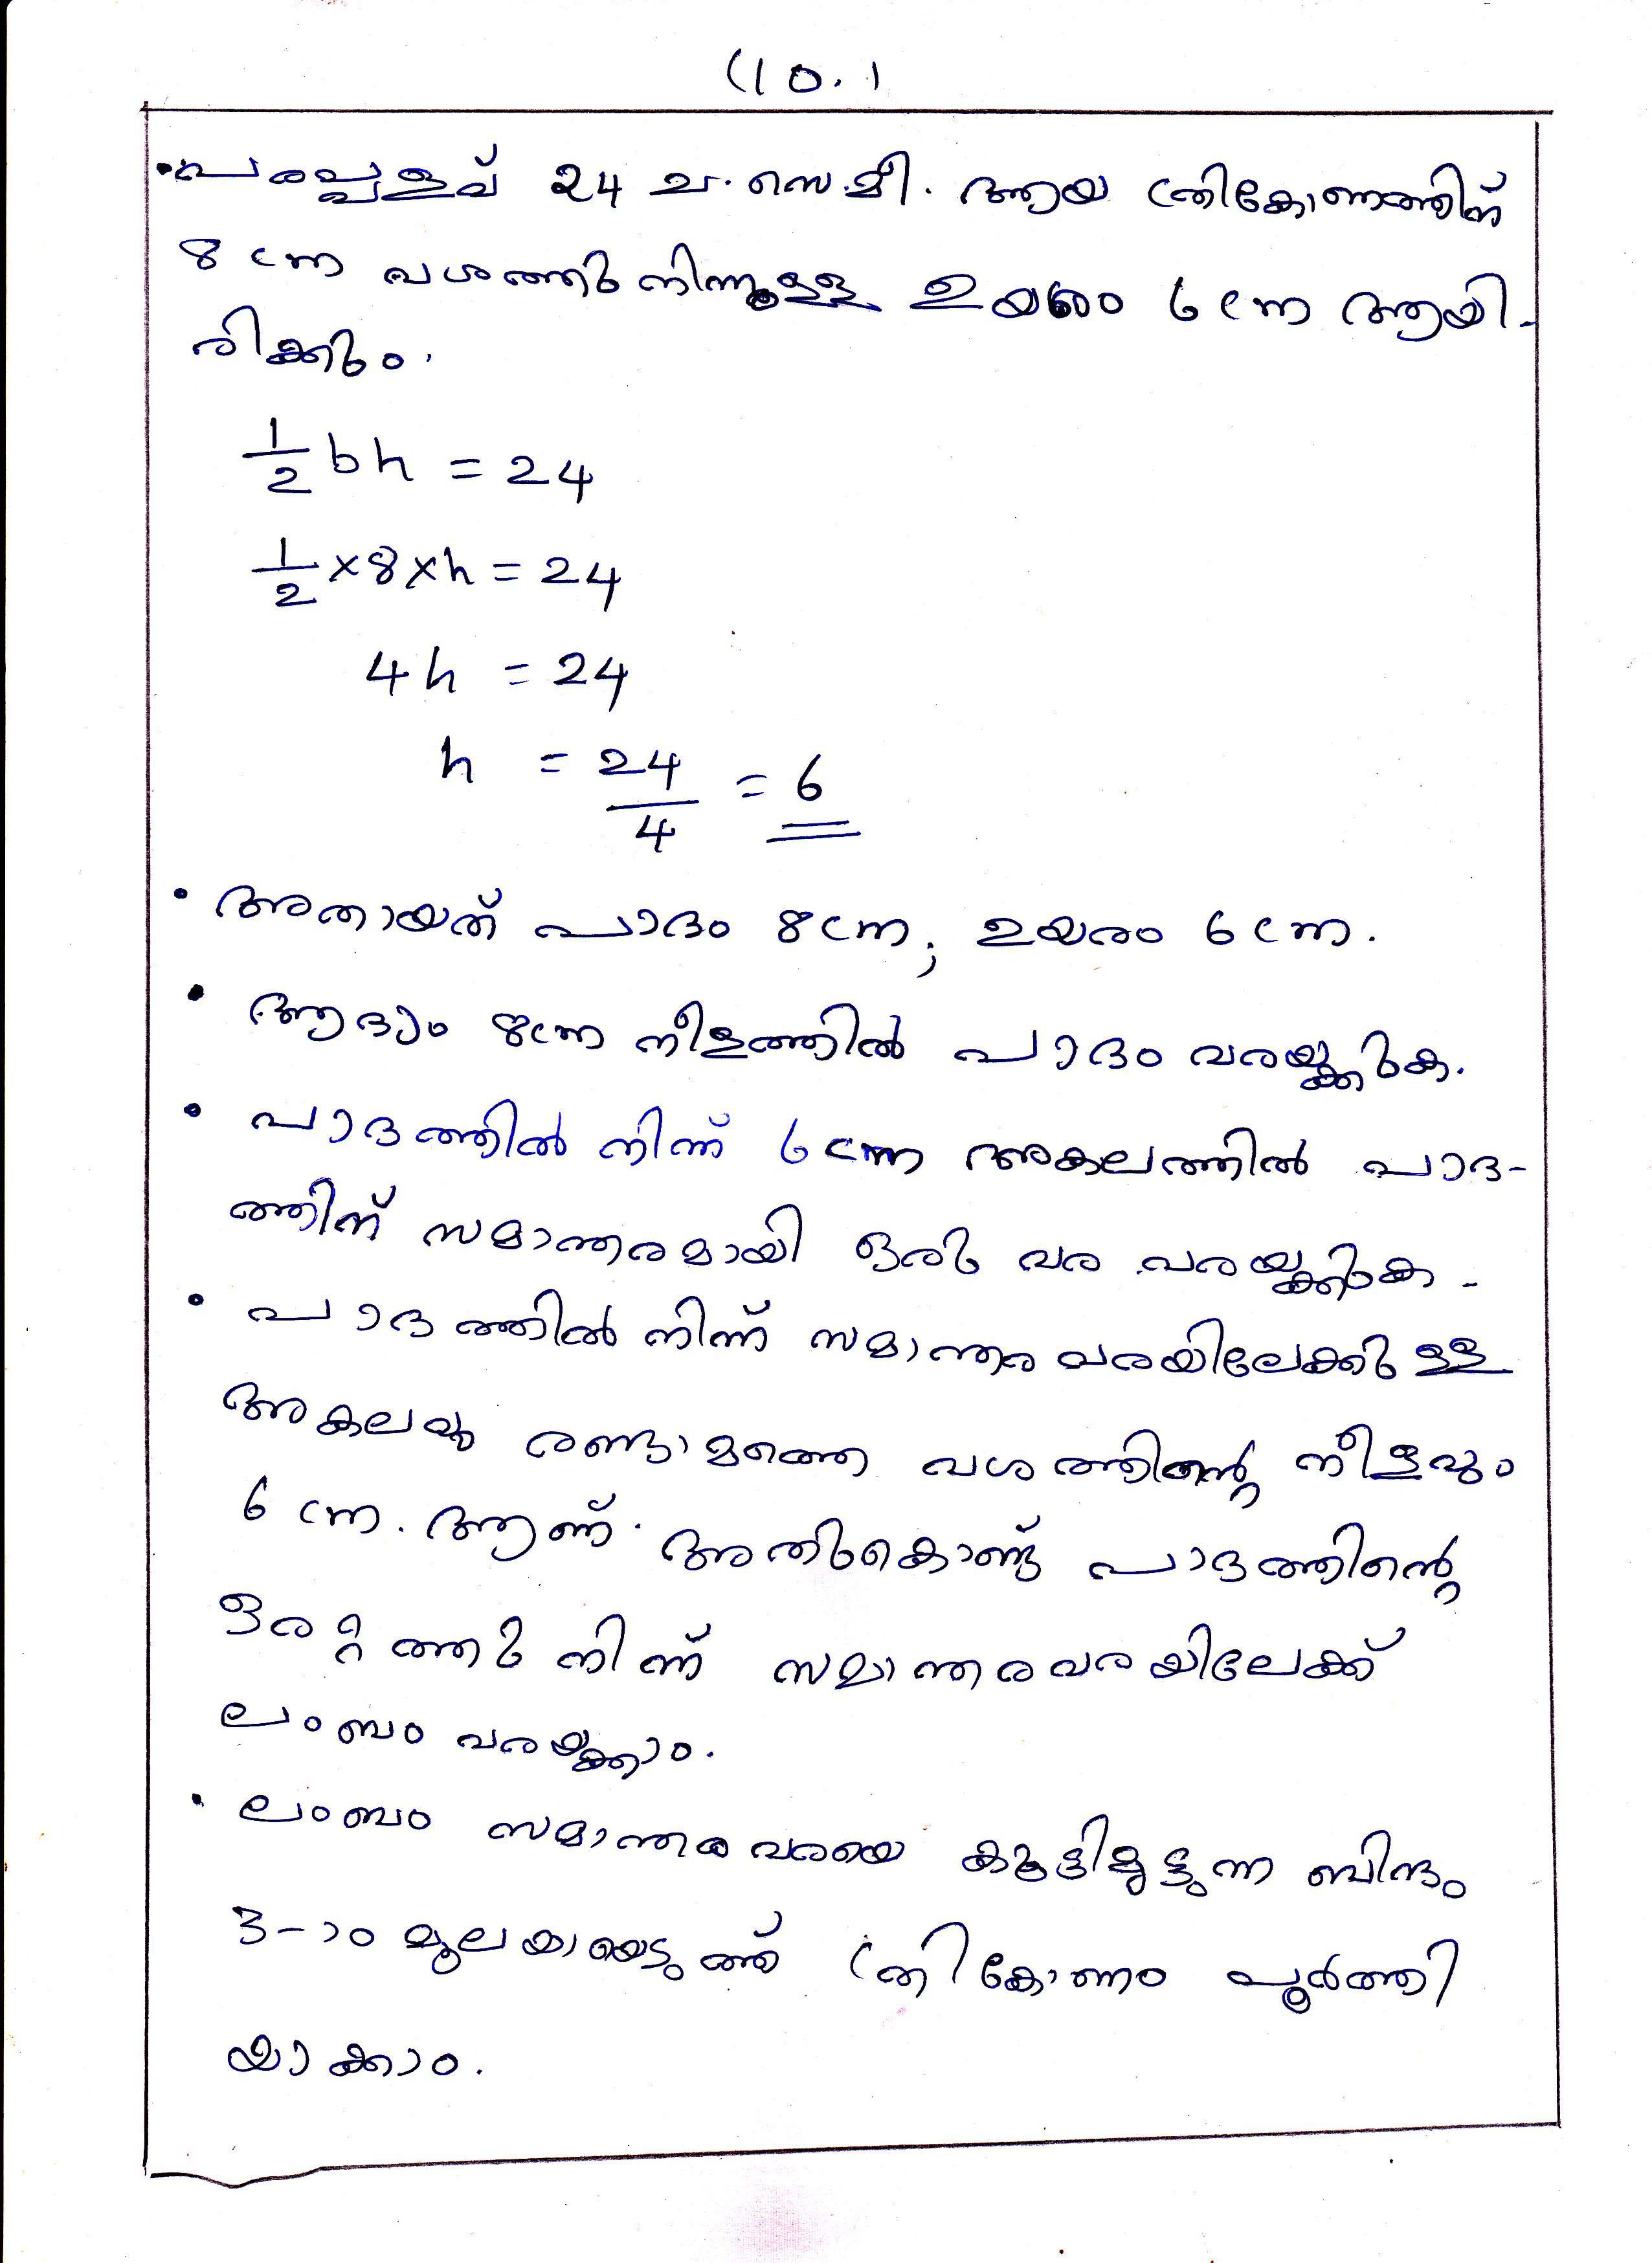 (10.)
• പരപ്പളവ് 24 ച.സെ.മീ. ആയ ത്രികോണത്തിന്
8 cm വശത്തുനിന്നുള്ള ഉയരം 6 cm ആയി-
രിക്കും.
1/2 bh = 24
1/2 × 8 × h = 24
4h = 24
h = 24/4 = 6
• അതായത് പാദം 8cm; ഉയരം 6cm.
• ആദ്യം 8cm നീളത്തിൽ പാദം വരയ്ക്കുക.
• പാദത്തിൽ നിന്ന് 6cm അകലത്തിൽ പാദ-
ത്തിന് സമാന്തരമായി ഒരു വര വരയ്ക്കുക.
• പാദത്തിൽ നിന്ന് സമാന്തര വരയിലേക്കുള്ള
അകലവും രണ്ടാമത്തെ വശത്തിന്റെ നീളവും
6 cm. ആണ്. അതുകൊണ്ട് പാദത്തിന്റെ
ഒരറ്റത്തു നിന്ന് സമാന്തരവരയിലേക്ക്
ലംബം വരയ്ക്കാം.
• ലംബം സമാന്തര വരയെ കൂട്ടിമുട്ടുന്ന ബിന്ദു
3-ാം മൂലയായെടുത്ത് ത്രികോണം പൂർത്തി
യാക്കാം.